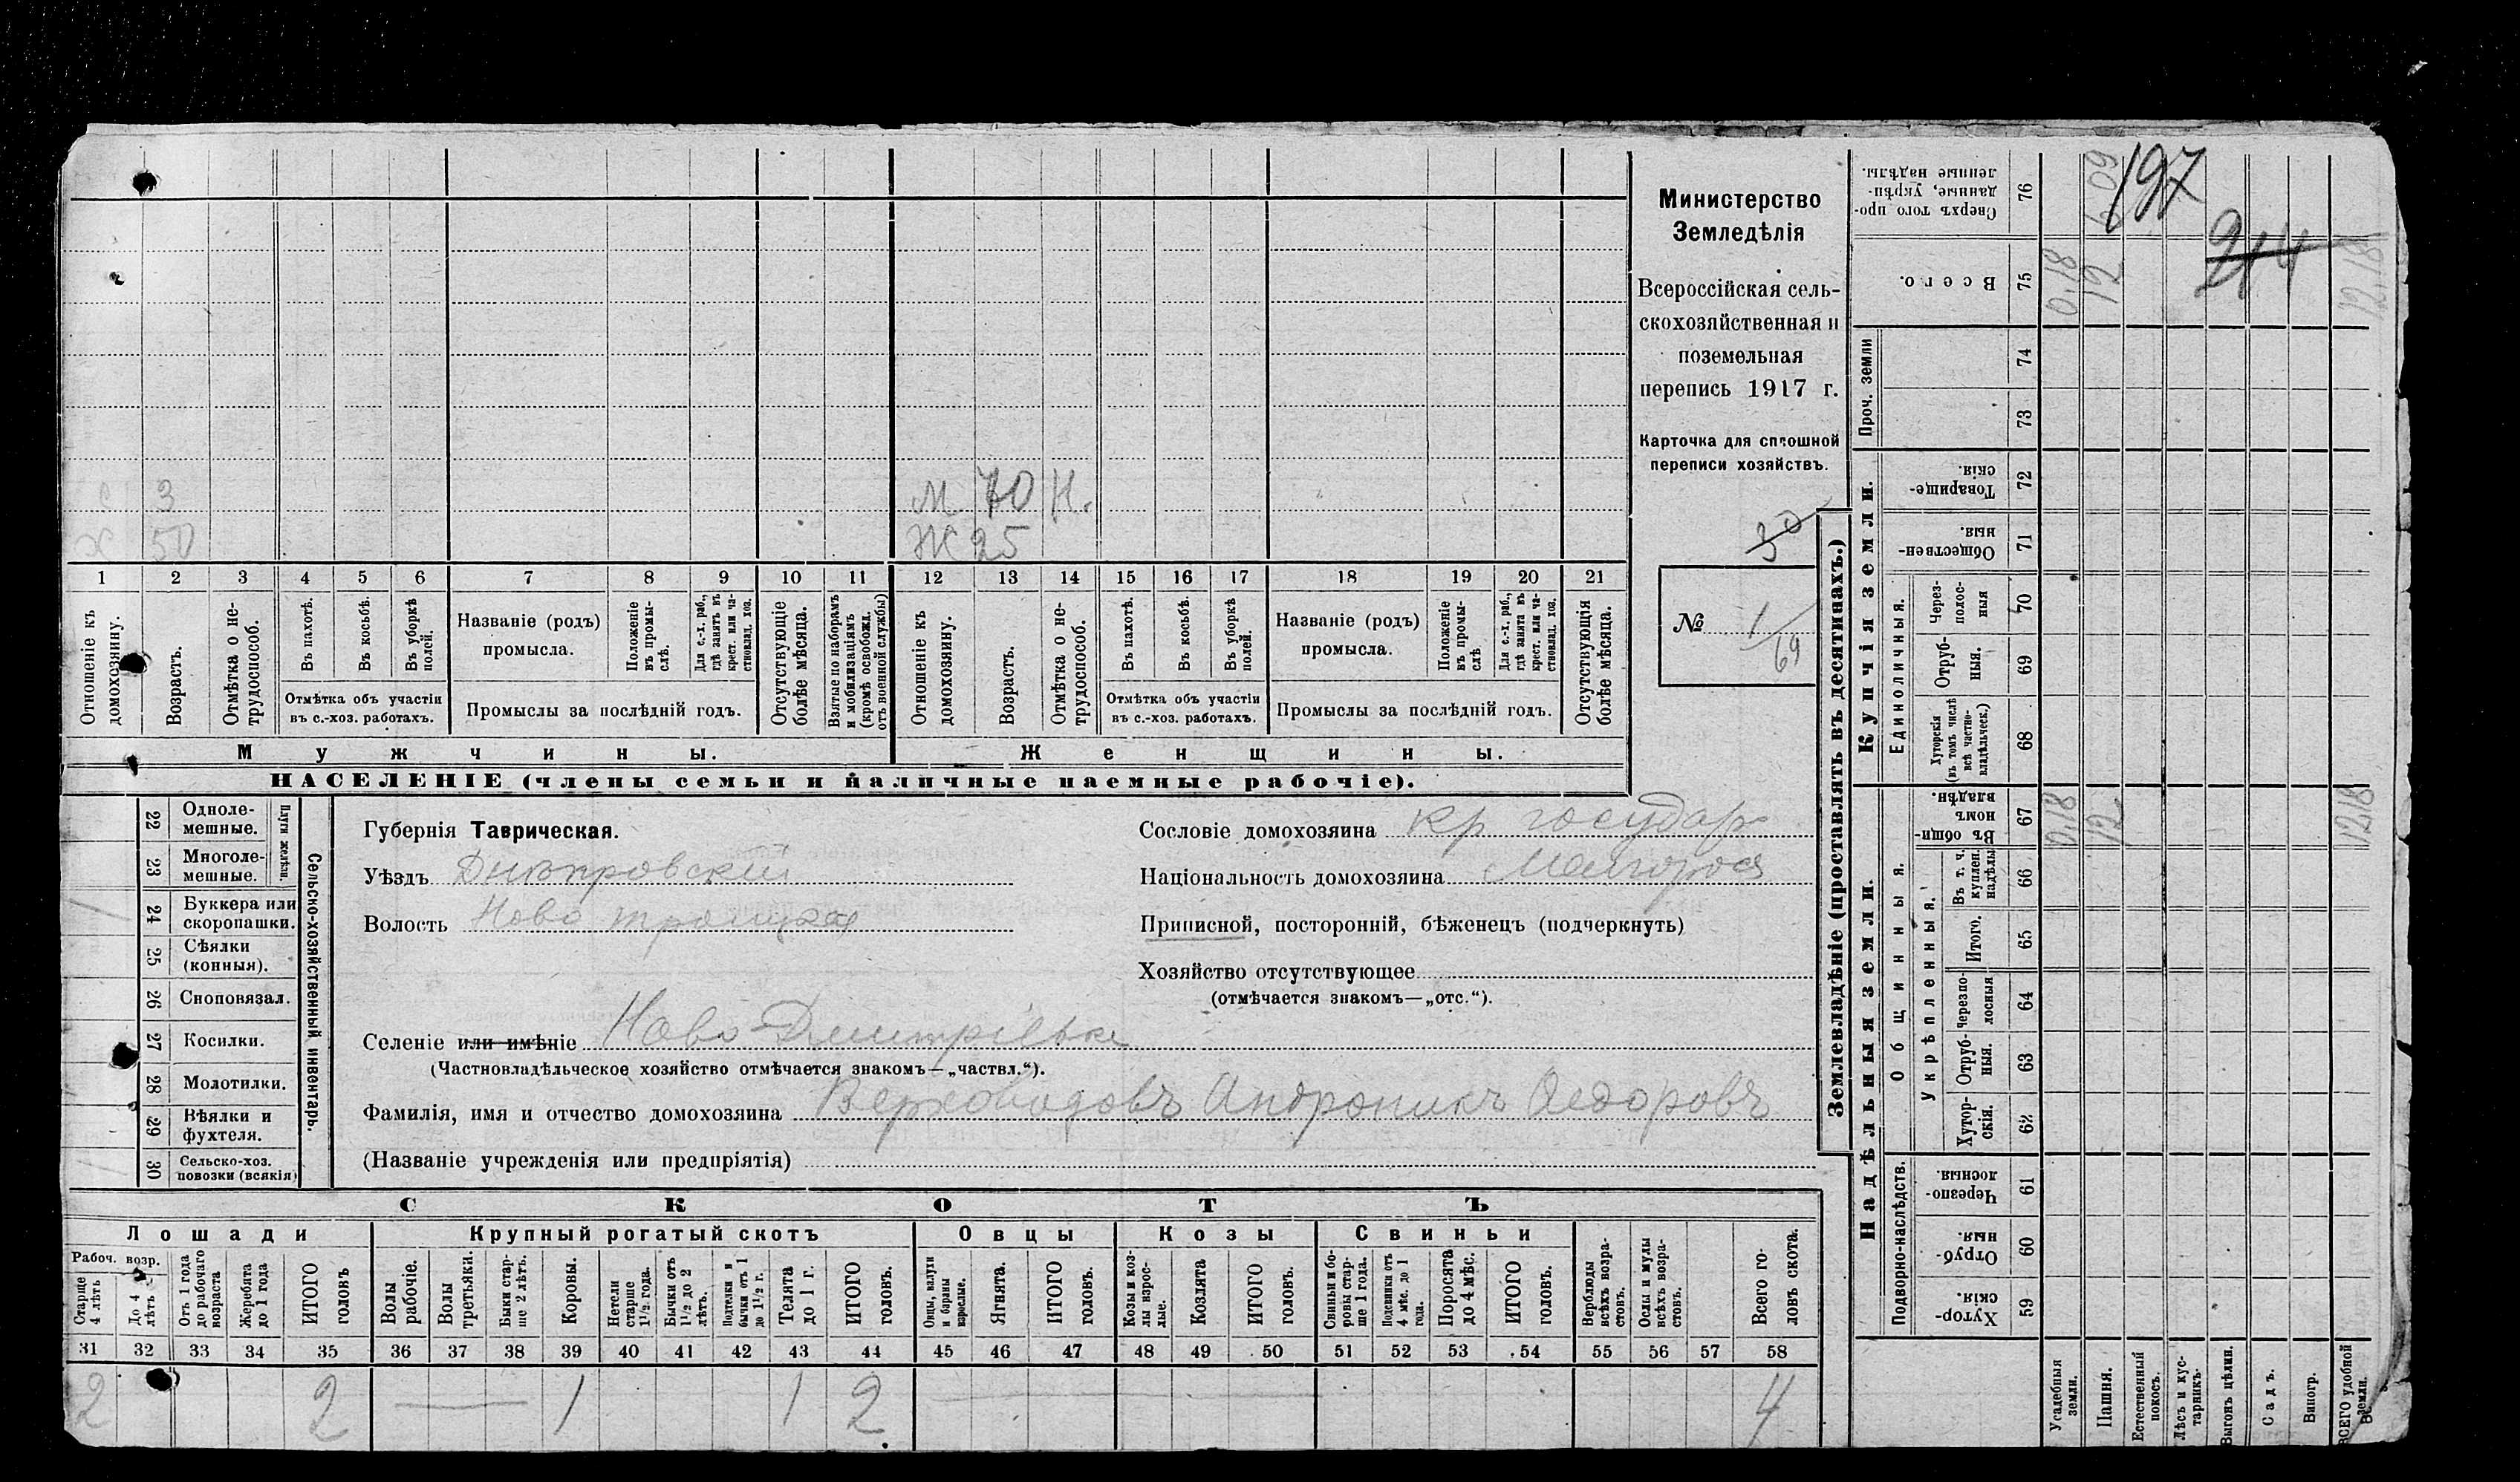 Министерство
Земледѣлія
Всероссійская сель-
скохозяйственная и
поземельная
перепись 1917 г.
Карточка для сплошной
переписи хозяйствъ.
30
№ 1/69
с 3 м 70 н.
х 50 ж 25
1 2 3 4 5 6 7 8 9 10 11 12 13 14 15 16 17 18 19 20 21
Отношеніе къ домохозяину.
Возрастъ.
Отмѣтка о не-трудоспособ.
Въ пахотѣ.
Въ косьбѣ.
Въ уборкѣ полей.
Отмѣтка объ участіи
въ с.-хоз. работахъ.
Названіе (родъ)
промысла.
Положеніе въ промы-слѣ.
Для с.-х. раб., гдѣ занятъ въ крест. или ча-стновлад. хоз.
Промыслы за послѣдній годъ.
Отсутствующіе болѣе мѣсяца.
Взятые по наборамъ и мобилизаціямъ (кромѣ освобожд. отъ военной службы)
Отношеніе къ домохозяину.
Возрастъ.
Отмѣтка о не-трудоспособ.
Въ пахотѣ.
Въ косьбѣ.
Въ уборкѣ полей.
Отмѣтка объ участіи
въ с.-хоз. работахъ.
Названіе (родъ)
промысла.
Положеніе въ промы-слѣ
Для с.-х. раб., гдѣ занята въ крест. или ча-стновлад. хоз.
Промыслы за послѣдній годъ.
Отсутствующія болѣе мѣсяца.
Мужчины. Женщины.
НАСЕЛЕНІЕ (члены семьи и наличные наемные рабочіе).
22 Одноле-мешные.
23 Многоле-мешные.
Плуги желѣзн.
24 Буккера или скоропашки.
25 Сѣялки (конныя).
26 Сноповязал.
27 Косилки.
28 Молотилки.
29 Вѣялки и фухтеля.
30 Сельско-хоз. повозки (всякія)
Сельско-хозяйственный инвентарь.
Губернія Таврическая.
Уѣздъ Днѣпровскій
Волость Ново троицкая
Сословіе домохозяина кр государ
Національность домохозяина Малорос
Приписной, посторонній, бѣженецъ (подчеркнуть)
Хозяйство отсутствующее
(отмѣчается знакомъ—„отс.“).
Селеніе или имѣніе Ново-Дмитріевка
(Частновладѣльческое хозяйство отмѣчается знакомъ—„частвл.“).
Фамилія, имя и отчество домохозяина Верховодовъ Андроникъ Федоровъ
(Названіе учрежденія или предпріятія)
СКОТЪ
Лошади Крупный рогатый скотъ Овцы Козы Свиньи
Рабоч. возр.
Старше 4 лѣтъ
До 4 лѣтъ
Отъ 1 года до рабочаго возраста
Жеребята до 1 года
ИТОГО головъ
Волы рабочіе.
Волы третьяки.
Быки стар-ше 2 лѣтъ.
Коровы.
Нетели старше 1½ года.
Бычки отъ 1½ до 2 лѣтъ.
Подтелки и бычки отъ 1 до 1½ г.
Телята до 1 г.
ИТОГО головъ.
Овцы, валухи и бараны взрослые.
Ягнята.
ИТОГО головъ.
Козы и коз-лы взрос-лые.
Козлята
ИТОГО головъ.
Свиньи и бо-ровы стар-ше 1 года.
Подсвинки отъ 4 мѣс. до 1 года.
Поросята до 4 мѣс.
ИТОГО головъ.
Верблюды всѣхъ возра-стовъ.
Ослы и мулы всѣхъ возра-стовъ.
Всего го-ловъ скота.
31 32 33 34 35 36 37 38 39 40 41 42 43 44 45 46 47 48 49 50 51 52 53 54 55 56 57 58
2 2 1 1 2 4
Землевладѣніе (проставлять въ десятинахъ.)
Купчія земли.
Надѣльныя земли.
197
214
76 Сверхъ того про-данные, укрѣп-ленные надѣлы. 6.09
75 Всего. 0,18 12 12,18
Проч. земли
74
73
72 Товарище-скія.
71 Обществен-ныя.
Единоличныя.
70 Через-полос-ныя
69 Отруб-ныя.
68 Хуторскія (въ томъ числѣ всѣ частно-владѣльческ.)
67 Въ общи-номъ владѣн. 0,18 12 12,18
Общинныя.
Укрѣпленныя.
66 Въ т. ч. куплен. надѣлы
65 Итого.
64 Черезпо-лосныя
63 Отруб-ныя.
62 Хутор-скія.
Подворно-наслѣдств.
61 Черезпо-лосныя.
60 Отруб-ныя.
59 Хутор-скія.
Усадебныя земли.
Пашня.
Естественный покосъ.
Лѣсъ и кус-тарникъ.
Выгонъ цѣлин.
Садъ.
Виногр.
ВСЕГО удобной земли.